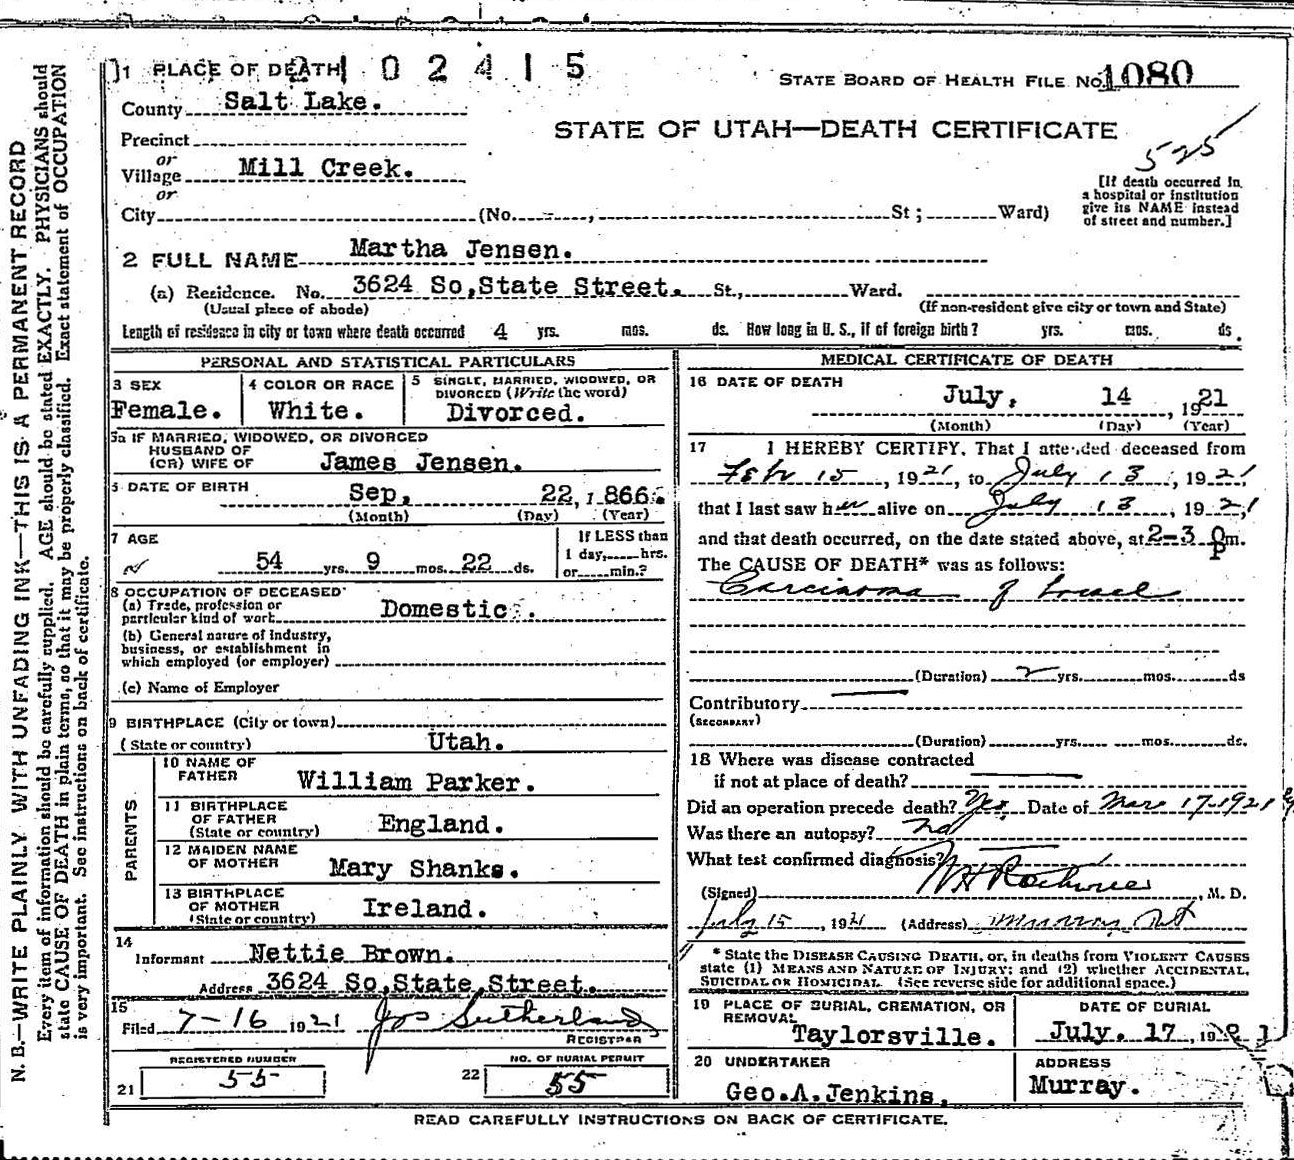 1 PLACE OF DEATH 2102415
STATE BOARD OF HEALTH FILE No. 1080
County Salt Lake.
STATE OF UTAH—DEATH CERTIFICATE
525
Precinct
or
Village Mill Creek.
or
City (No. , St; Ward)
[If death occurred in
a hospital or institution
give its NAME instead
of street and number.]
2 FULL NAME Martha Jensen.
(a) Residence. No. 3624 So,State Street. St., Ward.
(Usual place of abode) (If non-resident give city or town and State)
Length of residence in city or town where death occurred 4 yrs. mos. ds. How long in U. S., if of foreign birth? yrs. mos. ds.
PERSONAL AND STATISTICAL PARTICULARS
3 SEX
Female.
4 COLOR OR RACE
White.
5 SINGLE, MARRIED, WIDOWED, OR
DIVORCED (Write the word)
Divorced.
5a IF MARRIED, WIDOWED, OR DIVORCED
HUSBAND OF
(OR) WIFE OF James Jensen.
6 DATE OF BIRTH Sep, 22, 1866.
(Month) (Day) (Year)
7 AGE
54 yrs. 9 mos. 22 ds.
If LESS than
1 day, hrs.
or min.?
8 OCCUPATION OF DECEASED
(a) Trade, profession or
particular kind of work Domestic.
(b) General nature of industry,
business, or establishment in
which employed (or employer)
(c) Name of Employer
9 BIRTHPLACE (City or town)
(State or country) Utah.
PARENTS
10 NAME OF
FATHER William Parker.
11 BIRTHPLACE
OF FATHER
(State or country) England.
12 MAIDEN NAME
OF MOTHER Mary Shanks.
13 BIRTHPLACE
OF MOTHER
(State or country) Ireland.
14
Informant Nettie Brown.
Address 3624 So,State Street.
15
Filed 7-16 1921 Jos Sutherland
REGISTRAR
REGISTERED NUMBER
21 55
NO. OF BURIAL PERMIT
22 55
MEDICAL CERTIFICATE OF DEATH
16 DATE OF DEATH
July, 14 , 1921
(Month) (Day) (Year)
17 I HEREBY CERTIFY, That I attended deceased from
Feb 15, 1921, to July 13, 1921
that I last saw her alive on July 13, 1921
and that death occurred, on the date stated above, at 2-30 Pm.
The CAUSE OF DEATH* was as follows:
Carcinoma of bowel
(Duration) 2 yrs. mos. ds
Contributory
(SECONDARY)
(Duration) yrs. mos. ds.
18 Where was disease contracted
if not at place of death?
Did an operation precede death? Yes. Date of Mar 17-1921
Was there an autopsy? no
What test confirmed diagnosis?
(Signed) , M. D.
July 15, 1921 (Address) Murray Ut
* State the DISEASE CAUSING DEATH, or, in deaths from VIOLENT CAUSES
state (1) MEANS AND NATURE OF INJURY; and (2) whether ACCIDENTAL,
SUICIDAL OR HOMICIDAL. (See reverse side for additional space.)
19 PLACE OF BURIAL, CREMATION, OR
REMOVAL
Taylorsville.
DATE OF BURIAL
July. 17, 1921
20 UNDERTAKER
Geo.A.Jenkins.
ADDRESS
Murray.
READ CAREFULLY INSTRUCTIONS ON BACK OF CERTIFICATE.
N. B.—WRITE PLAINLY WITH UNFADING INK—THIS IS A PERMANENT RECORD
Every item of information should be carefully supplied. AGE should be stated EXACTLY. PHYSICIANS should
state CAUSE OF DEATH in plain terms, so that it may be properly classified. Exact statement of OCCUPATION
is very important. See instructions on back of certificate.